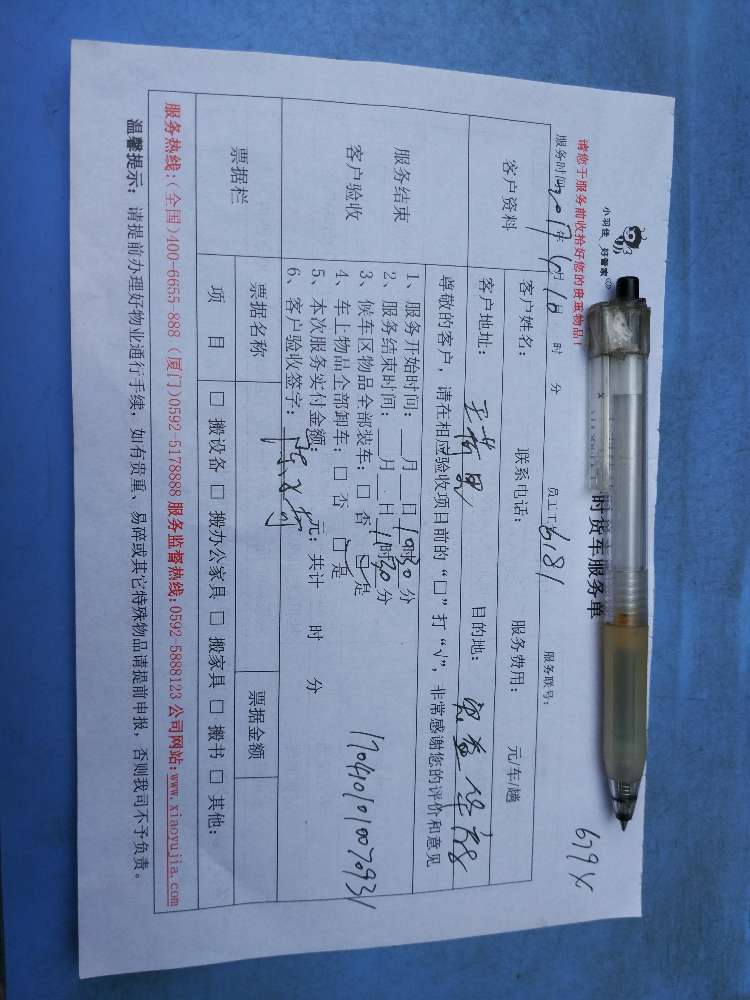 小羽佳 好管家
时货车服务单
679X
请您于服务前收拾好您的贵重物品！
服务时间 2017年4月1日 时 分 员工工 6181 服务联号：
客户资料 客户姓名： 联系电话： 服务费用： 元/车/趟
客户地址： 目的地：
尊敬的客户，请在相应验收项目前的“□”打“√”，非常感谢您的评价和意见
服务结束
客户验收
1、服务开始时间：__月__日10时30分
2、服务结束时间：__月__日11时30分
3、候车区物品全部装车：□ 否 ☑ 是
4、车上物品全部卸车：□ 否 □ 是
5、本次服务实付金额： 元；共计 时 分
6、客户验收签字：
170401010070931
票据栏 票据名称 票据金额
项 目 □ 搬设备 □ 搬办公家具 □ 搬家具 □ 搬书 □ 其他：
服务热线：（全国）400-6655-888 （厦门）0592-5178888 服务监督热线：0592-5888123 公司网站：www.xiaoyujia.com
温馨提示：请提前办理好物业通行手续，如有贵重、易碎或其它特殊物品请提前申报，否则我司不予负责。